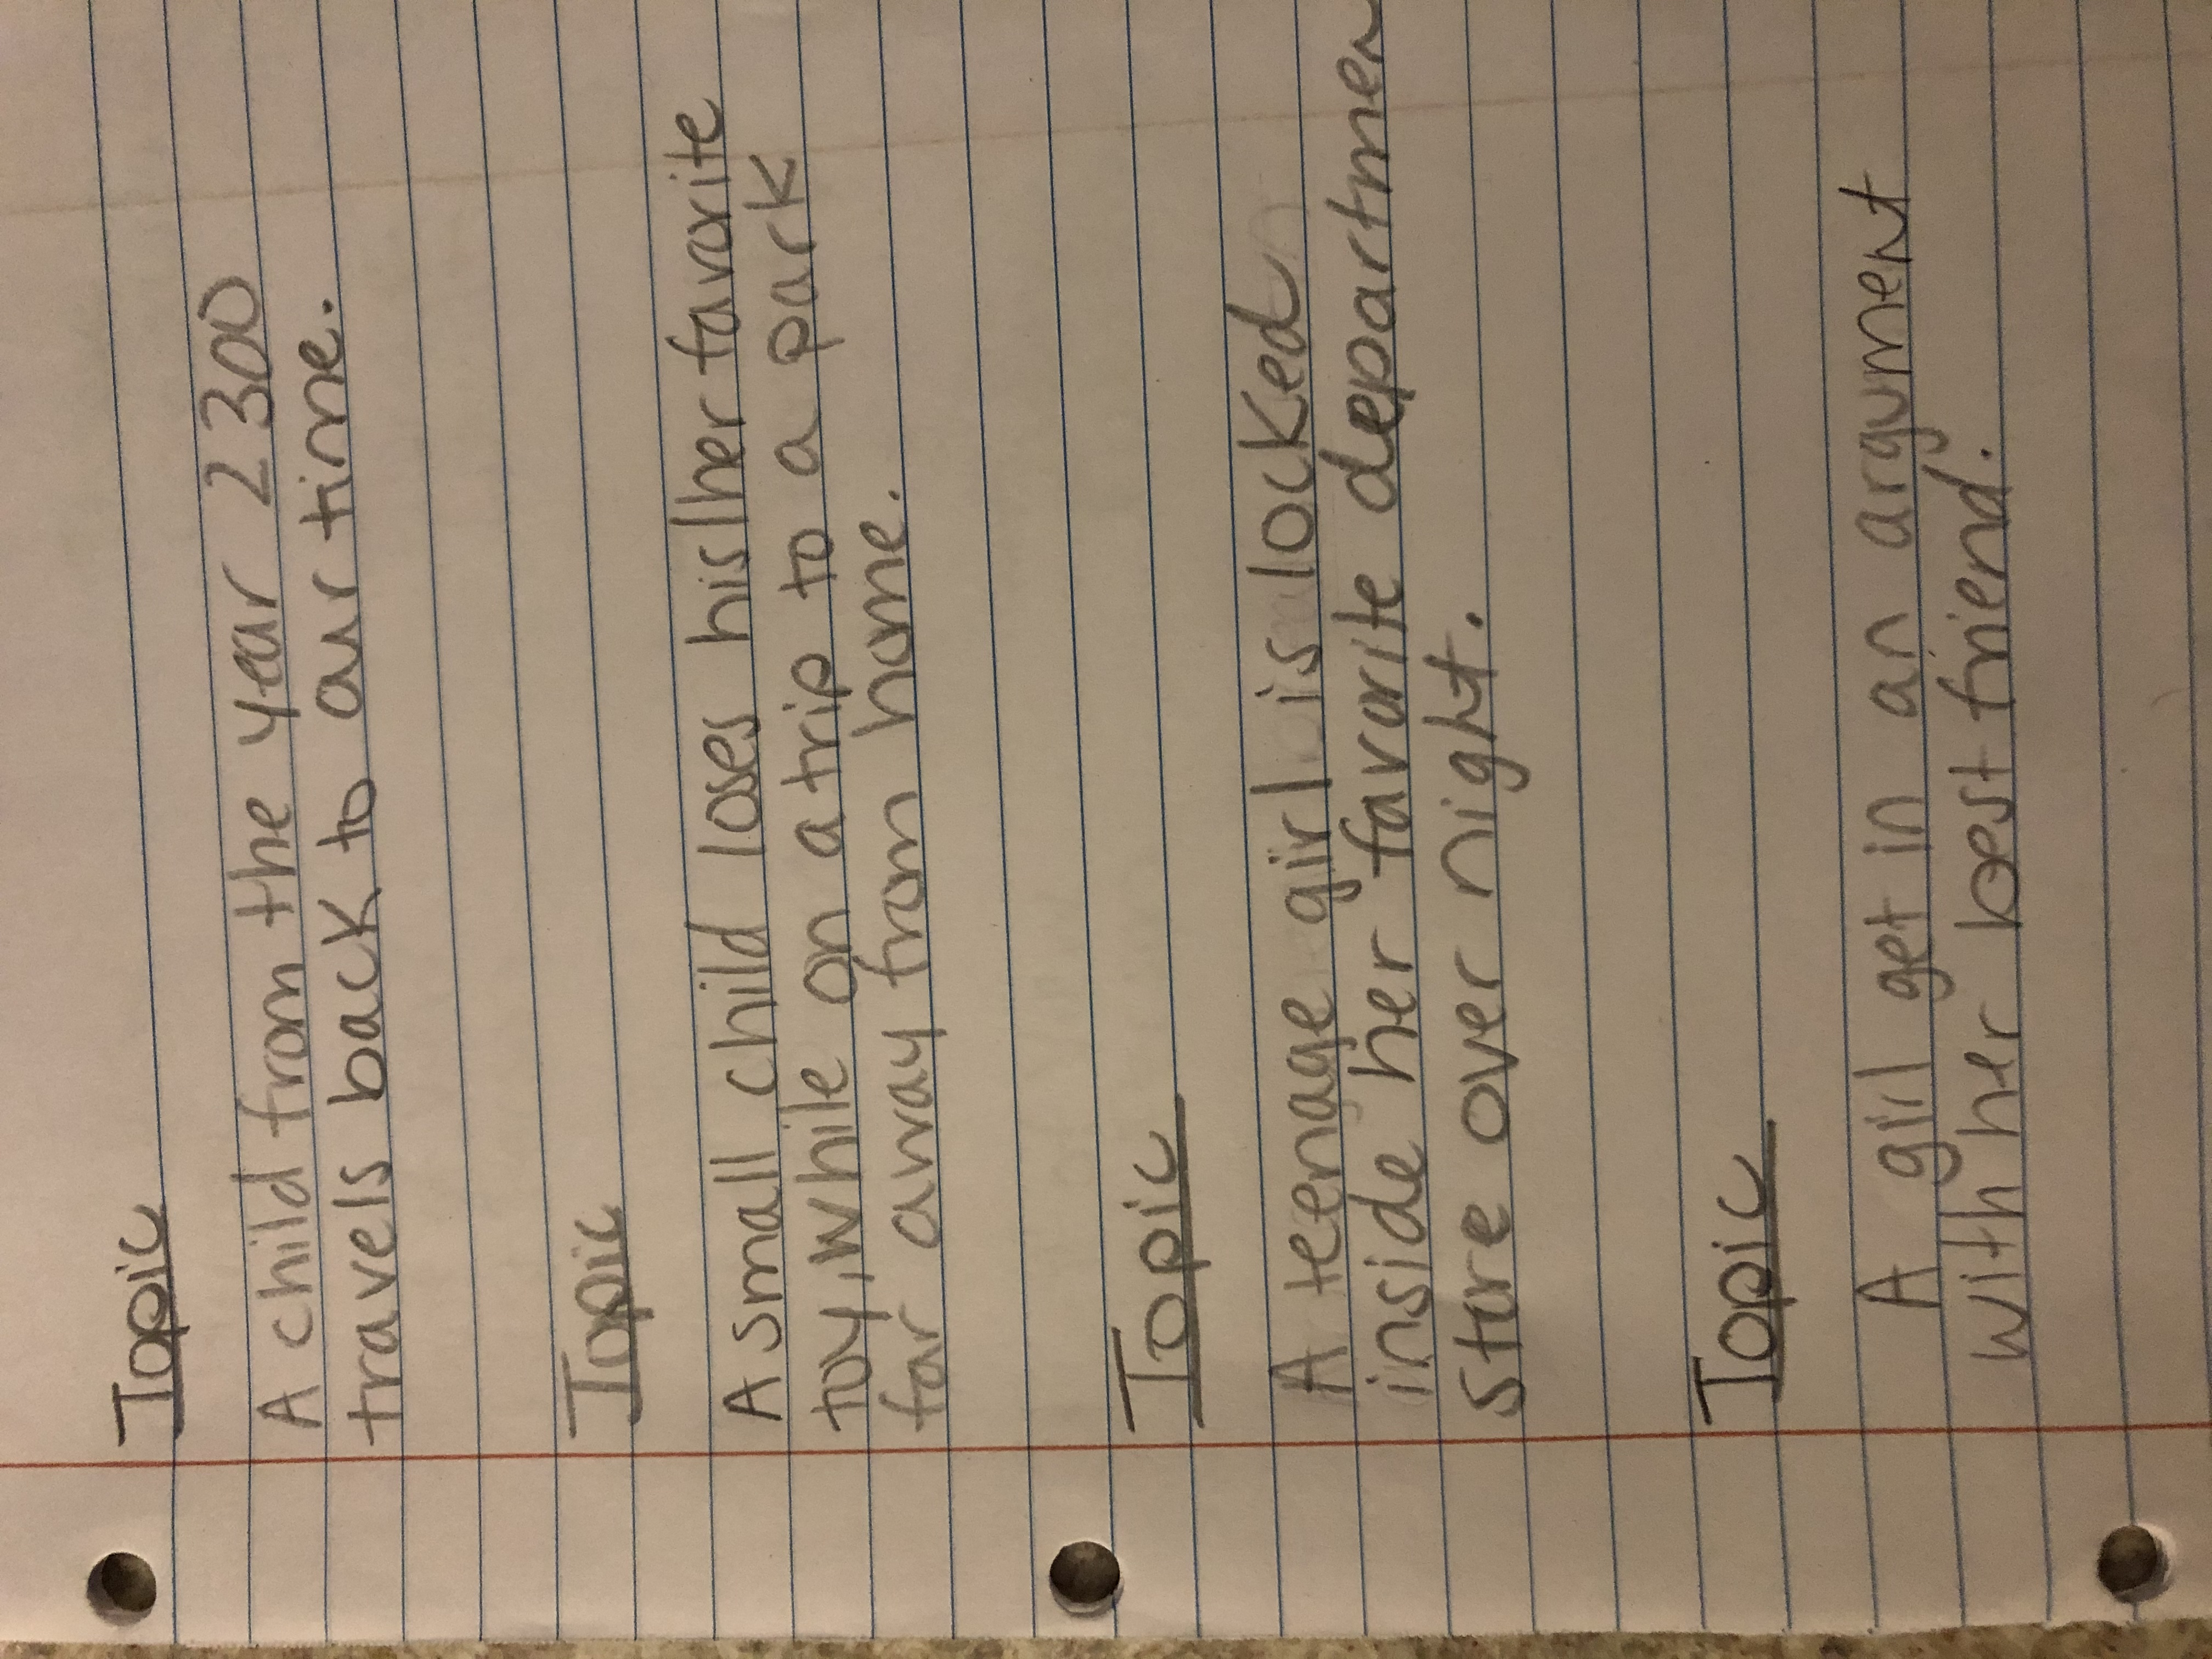 Topic
A child from the year 2300
travels back to our time.
Topic
A small child loses his/her favorite
toy, while on a trip to a park
far away from home.
Topic
A teenage girl is locked
inside her favorite departmen
store over night.
Topic
A girl get in an argument
with her best friend.